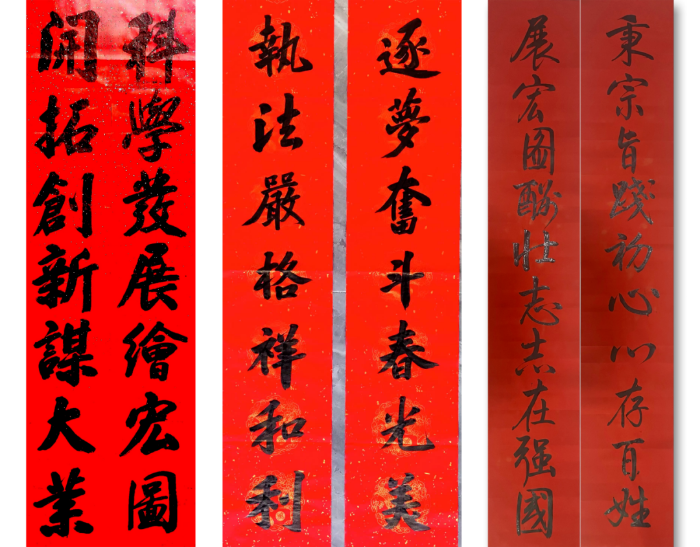 科學發展繪宏圖
開拓創新謀大業
逐夢奮斗春光美
執法嚴格祥和利
秉宗旨踐初心心存百姓
展宏图酬壯志志在强國